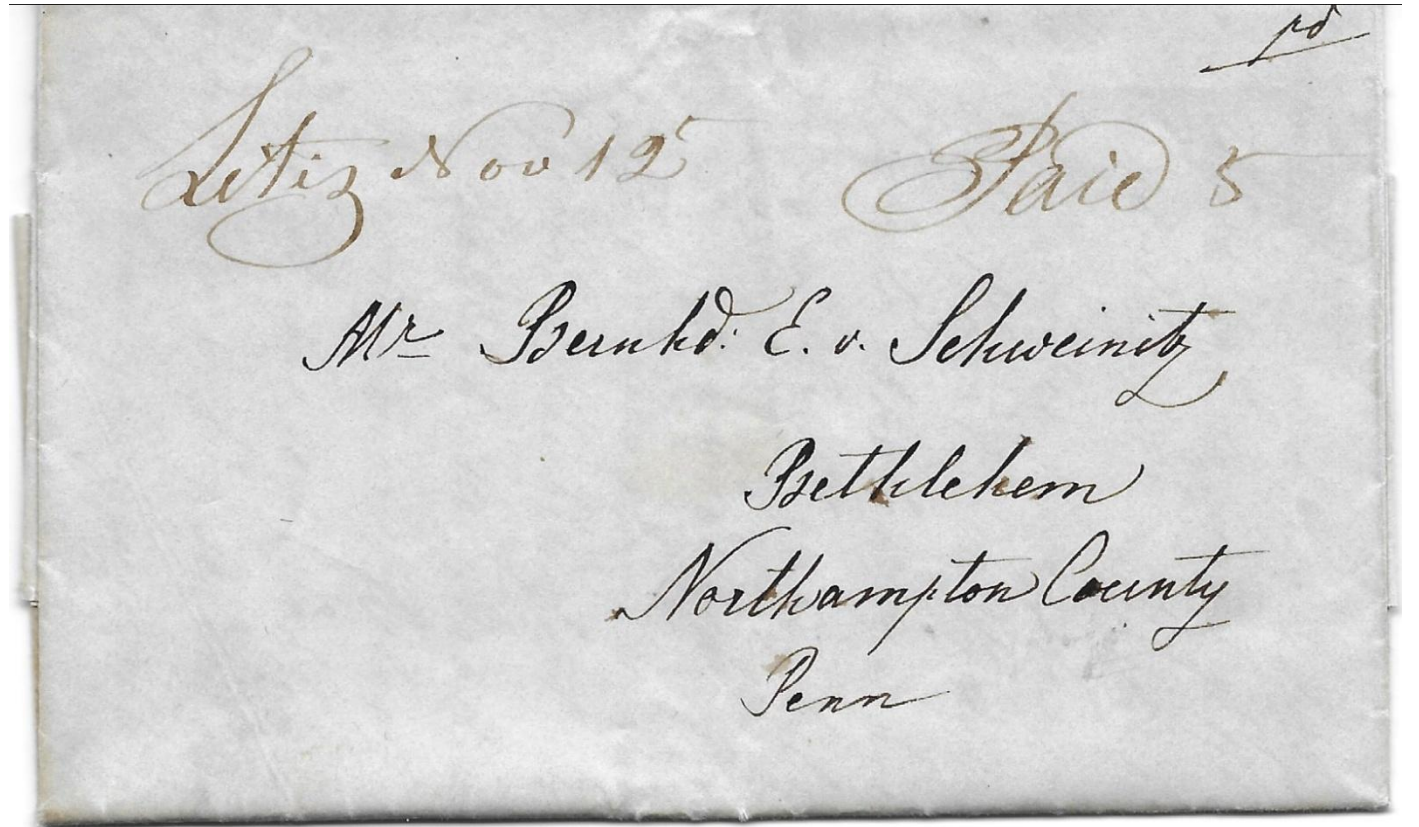 pd
Litiz Nov 12 Paid 5
Mr Bernhd. E. v. Schweinitz
Bethlehem
Northampton County
Penn